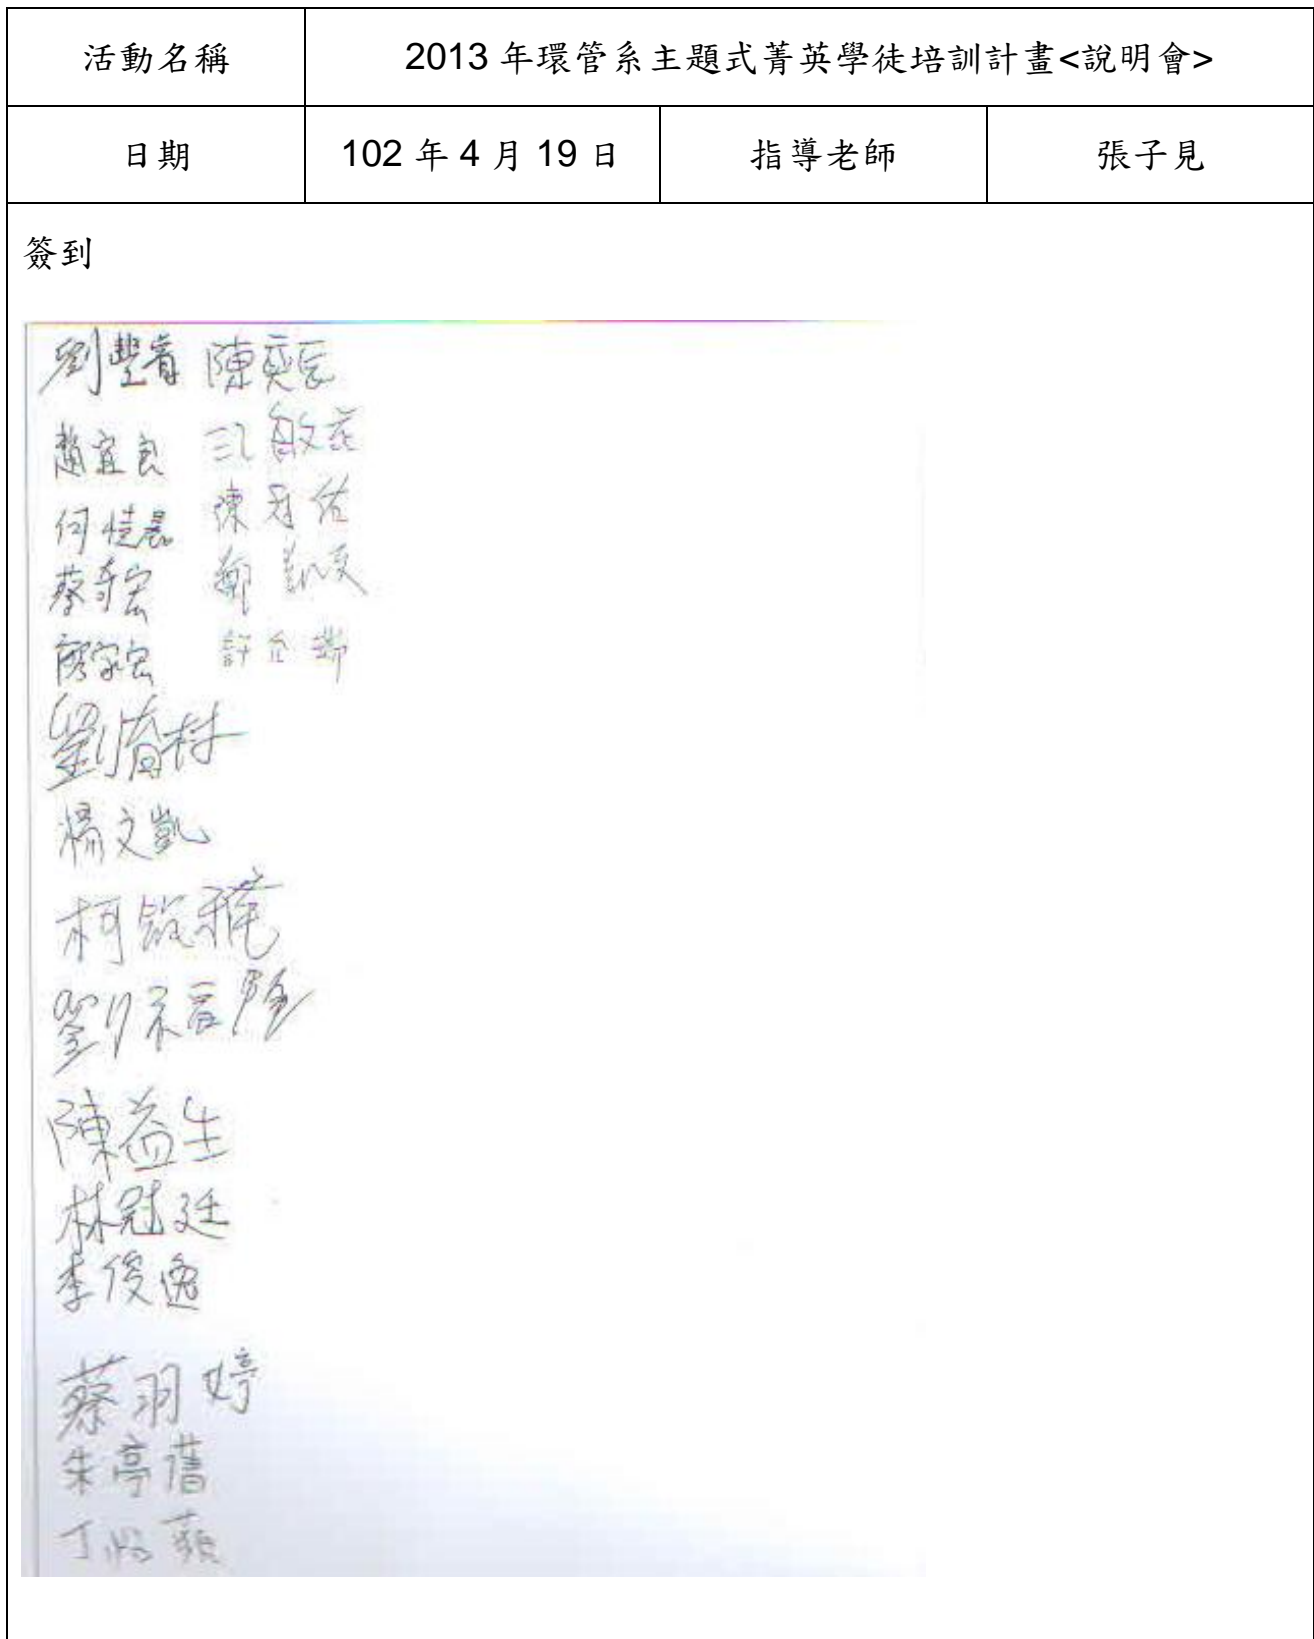 活動名稱 2013 年環管系主題式菁英學徒培訓計畫<說明會>
日期 102 年 4 月 19 日 指導老師 張子見
簽到
劉豐睿 陳奕辰
趙宜良
何愷晨 陳冠佑
蔡奇宏 鄭凱文
廖家宏 許企
劉育村
楊文凱
柯筑
劉
陳益生
林冠廷
李俊逸
蔡羽婷
朱亭
丁 蘋